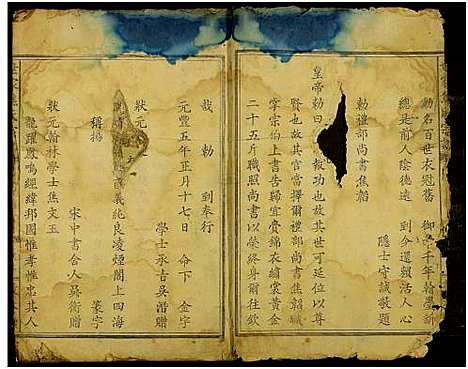 勳名百世衣冠舊 御 千年翰墨新
總是前人陰德遠 到今還賴活人心
隱士守誠敬題
勅禮部尚書焦韜
皇帝勅曰 報功也故其世可延位以尊
賢也故其官當擇爾禮部尚書焦韜職
掌宗伯上書告歸宜賚錦繡裳黃金
二十五斤職照尚書以榮終身爾往欽
哉 勅 到奉行
元豐五年正月十七日 命下 金字
學士承吉吳潛贈
狀元
義純良凌煙閣上四海
稱揚
宋中書舍人蘇衛贈 篆字
狀元翰林學士焦文玉
龍躍鳳鳴經緯邦國惟孝惟忠其人